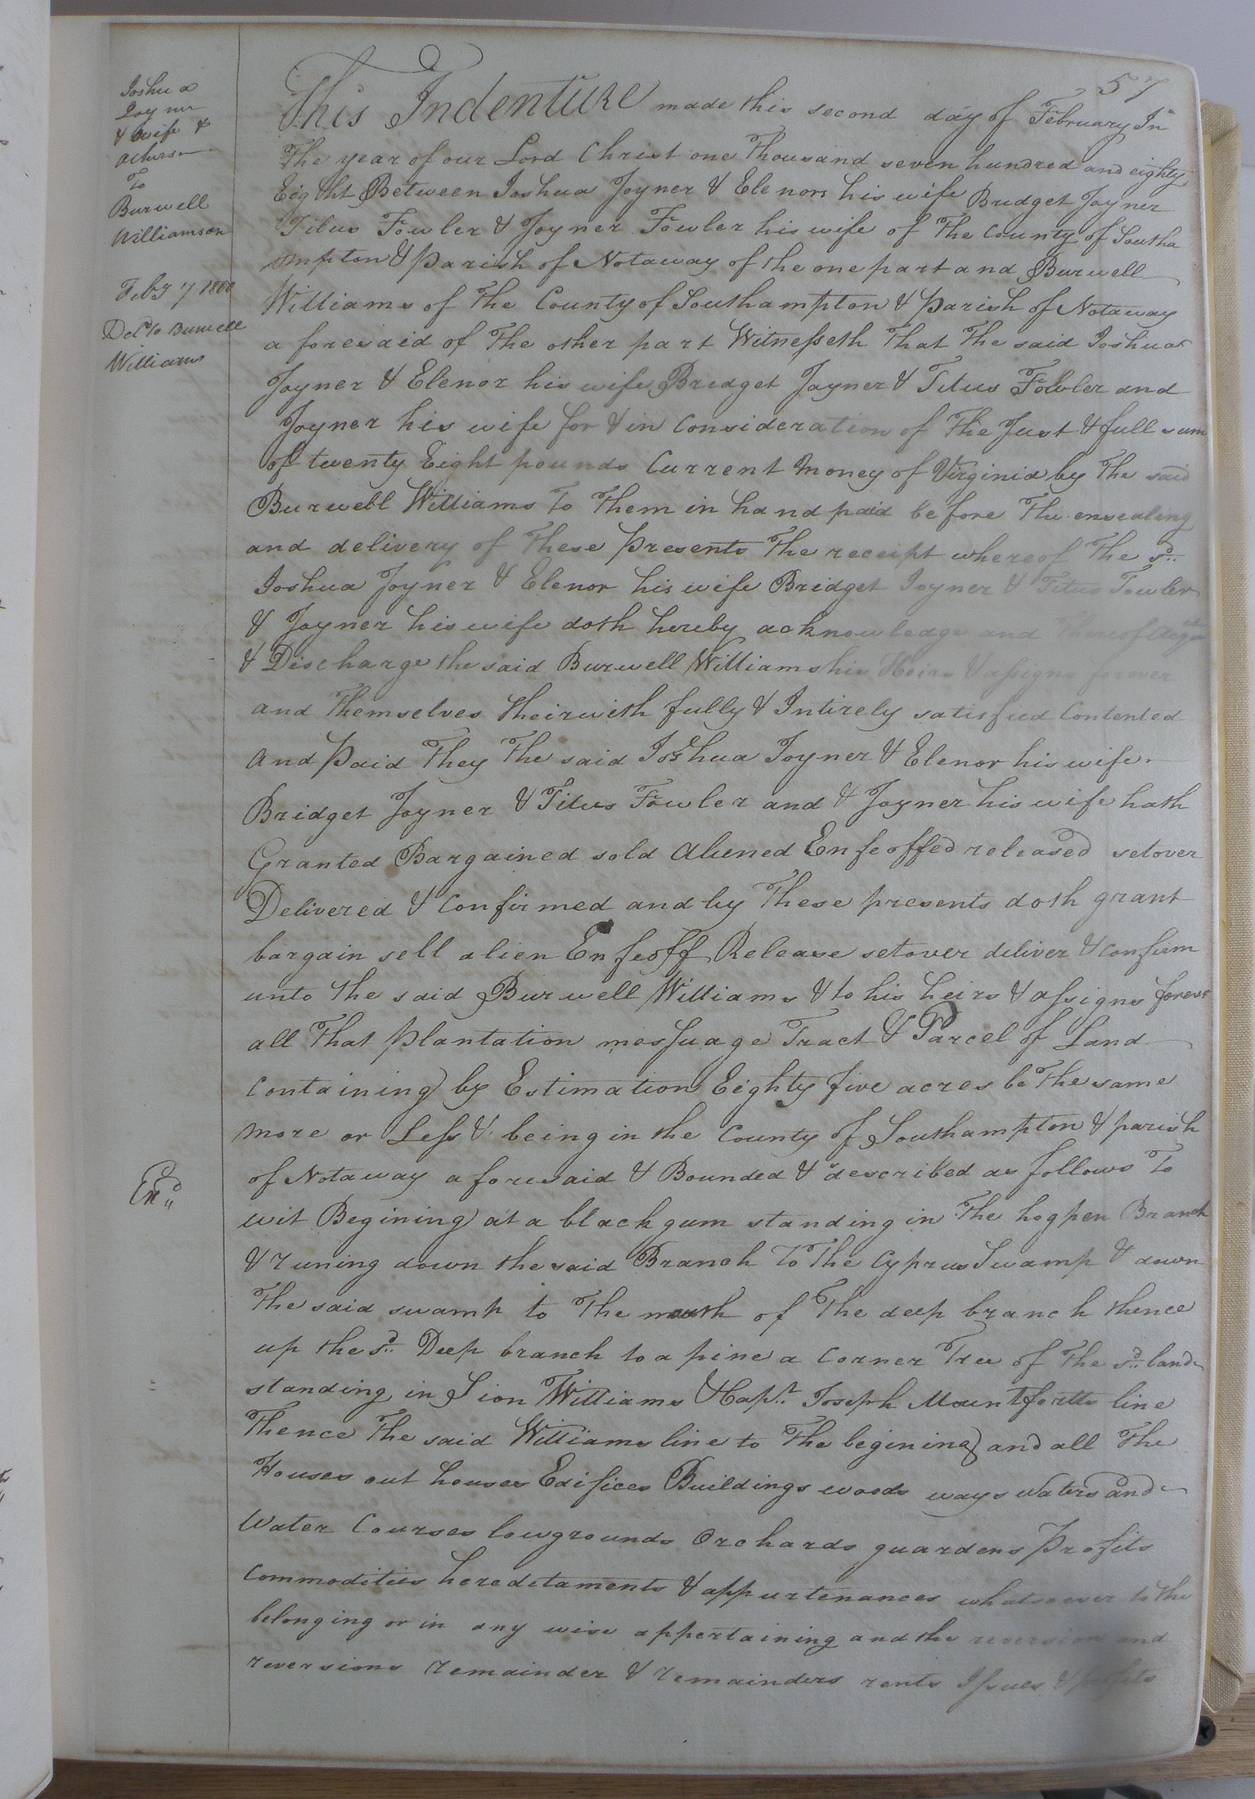 57
Joshua
Joyner
& Wife &
others
To
Burwell
Williamson
Feby 7 1800
Deld to Burwell
Williams
This Indenture made this second day of February In
The year of our Lord Christ one Thousand seven hundred and eighty
Eight Between Joshua Joyner & Elenor his wife Bridget Joyner
Titus Fowler & Joyner Fowler his wife of The County of Southa
mpton & Parish of Notaway of the one part and Burwell
Williams of The County of Southampton & Parish of Notaway
a foresaid of The other part Witnesseth That The said Joshua
Joyner & Elenor his wife Bridget Joyner & Titus Fowler and
Joyner his wife for & in Consideration of The Just & full sum
of twenty Eight pounds Current Money of Virginia by The said
Burwell Williams To Them in hand paid before The ensealing
and delivery of These Presents The receipt whereof The sd
Joshua Joyner & Elenor his wife Bridget Joyner & Titus Fowler
& Joyner his wife doth hereby acknowledge and thereof
& Discharge the said Burwell Williams his Heirs & assigns forever
and Themselves theirwith fully & Intirely satisfied Contented
And Paid They The said Joshua Joyner & Elenor his wife
Bridget Joyner & Titus Fowler and & Joyner his wife hath
Granted Bargained sold Aliened Enfeoffed released setover
Delivered & Confirmed and by These presents doth grant
bargain sell alien Enfeoff Release setover deliver & confirm
unto The said Burwell Williams & to his heirs & assigns forever
all That Plantation messuage Tract & Parcel of Land
Containing by Estimation Eighty five acres be The same
More or Less & being in the County of Southampton & parish
of Notaway a foresaid & Bounded & described as follows To
Exd
wit Begining at a black gum standing in The hogpen Branch
& runing down the said Branch To The Cyprus Swamp & down
The said swamp to The mouth of The deep branch thence
up the sd Deep branch to a pine a Corner Tree of The sd land
standing in Sion Williams & Capt Joseph Mountfortts line
Thence The said Williams line to The begining and all The
Houses out houses Edifices Buildings woods ways waters and
Water Courses lowgrounds Orchards guardens Profits
Commodities hereditaments & appurtenances whatsoever to the
belonging or in any wise appertaining and the reversion and
reversions remainder & remainders rents Issues & profits